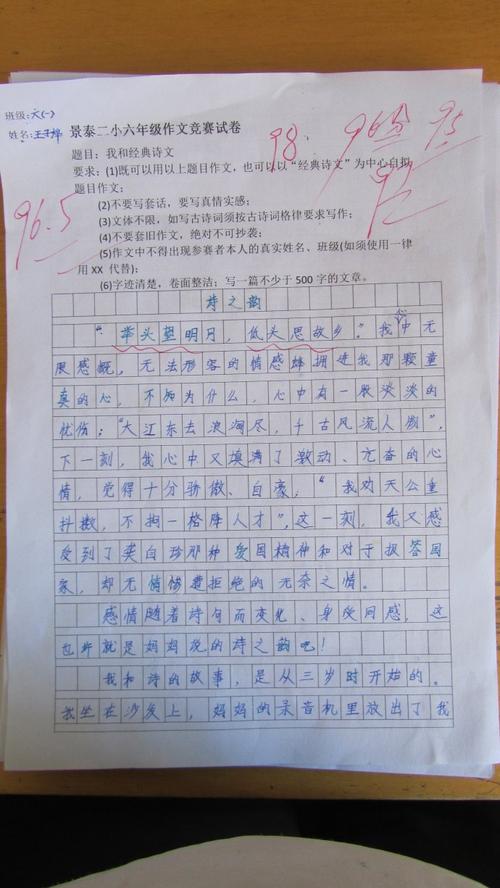 班级:六(一)
姓名:
景泰二小六年级作文竞赛试卷
98
96分
95
92
96.5
题目：我和经典诗文
要求：(1)既可以用以上题目作文，也可以以“经典诗文”为中心自拟
题目作文；
(2)不要写套话，要写真情实感；
(3)文体不限，如写古诗词须按古诗词格律要求写作；
(4)不要套旧作文，绝对不可抄袭；
(5)作文中不得出现参赛者本人的真实姓名、班级(如须使用一律
用 XX 代替)；
(6)字迹清楚，卷面整洁；写一篇不少于 500 字的文章。
诗之韵
“举头望明月，低头思故乡。”我心中无
限感慨，无法形容的情感蜂拥进我那颗童
真的心，不知为什么，心中有一股淡淡的
忧伤；“大江东去浪淘尽，千古风流人物”，
下一刻，我心中又填满了激动、亢奋的心
情，觉得十分骄傲、自豪，“我劝天公重
抖擞，不拘一格降人才”，这一刻，我又感
受到了龚自珍那种爱国精神和对于报答国
家，却无情惨遭拒绝的无奈之情。
感情随着诗句而变化、身受同感，这
也许就是妈妈说的诗之韵吧！
我和诗的故事，是从三岁时开始的。
我坐在沙发上，妈妈的录音机里放出了我